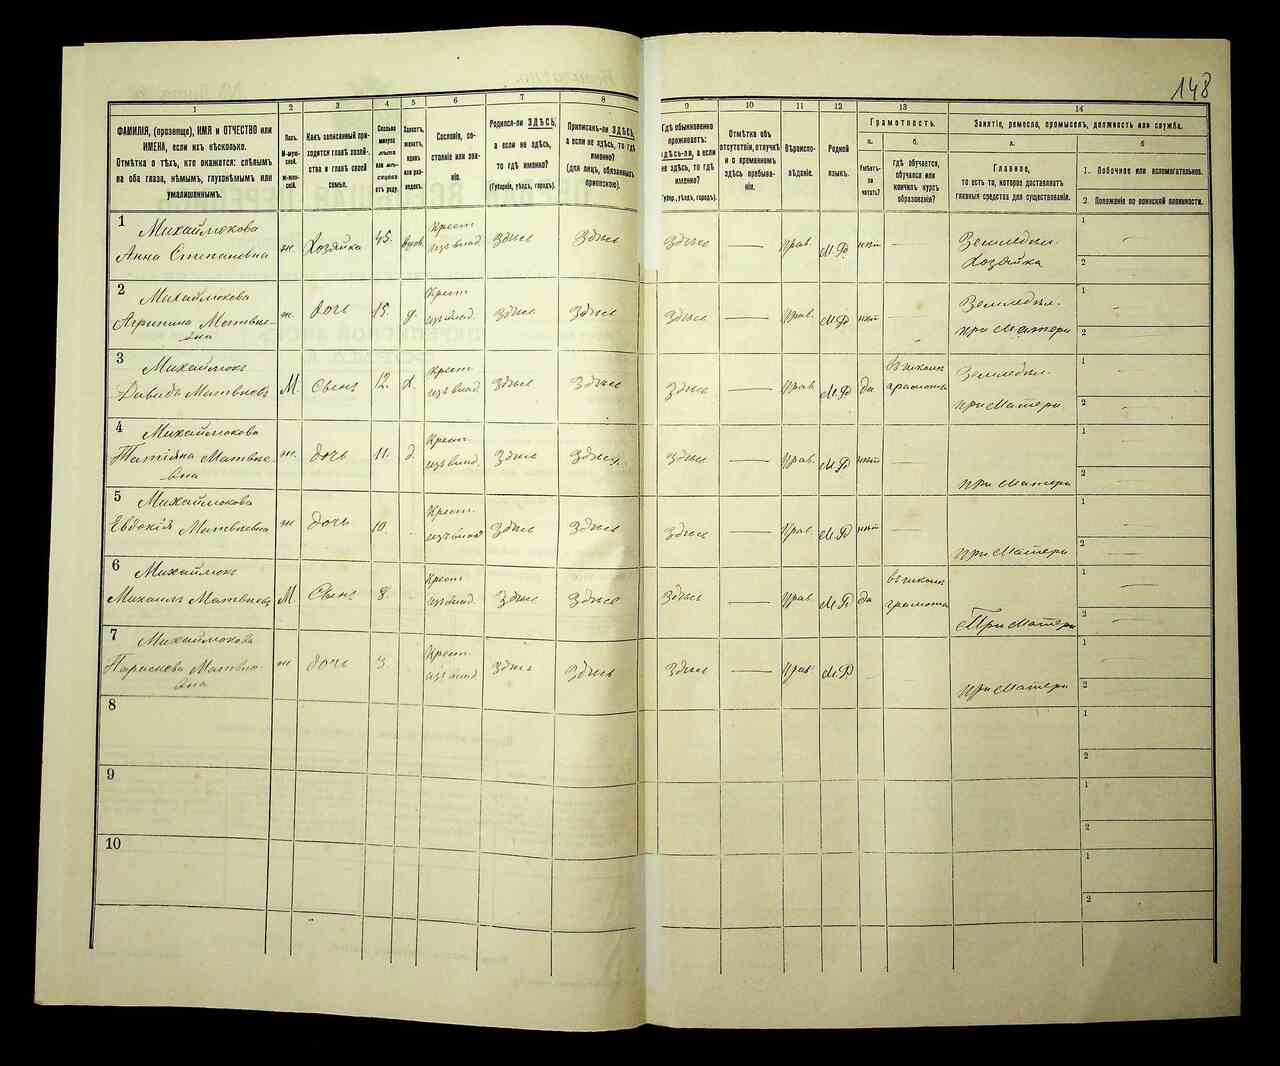 148
1
2
3
4
5
6
7
8
9
10
11
12
13
14
ФАМИЛІЯ, (прозвище), ИМЯ и ОТЧЕСТВО или
ИМЕНА, если ихъ нѣсколько.
Отмѣтка о тѣхъ, кто окажется: слѣпымъ
на оба глаза, нѣмымъ, глухонѣмымъ или
умалишеннымъ.
Полъ.
М-мужской.
ж-женскій.
Какъ записанный при-
ходится главѣ хозяй-
ства и главѣ своей
семьи.
Сколько
минуло
лѣтъ
или мѣ-
сяцевъ
отъ роду.
Холостъ,
женатъ,
вдовъ
или раз-
веденъ.
Сословіе, со-
стояніе или зва-
ніе.
Родился-ли ЗДѢСЬ,
а если не здѣсь,
то гдѣ именно?
(Губернія, уѣздъ, городъ).
Приписанъ-ли ЗДѢСЬ,
а если не здѣсь, то гдѣ
именно?
(для лицъ, обязанныхъ
припискою).
Гдѣ обыкновенно
проживаетъ:
здѣсь-ли, а если
не здѣсь, то гдѣ
именно?
(Губер., уѣздъ, городъ).
Отмѣтка объ
отсутствіи, отлучкѣ
и о временномъ
здѣсь пребыва-
ніи.
Вѣроиспо-
вѣданіе.
Родной
языкъ.
Грамотность.
а.
Умѣетъ-
ли
читать?
б.
Гдѣ обучается,
обучался или
кончилъ курсъ
образованія?
Занятіе, ремесло, промыселъ, должность или служба.
а.
Главное,
то есть то, которое доставляетъ
главныя средства для существованія.
б
1. Побочное или вспомогательное.
2. Положеніе по воинской повинности.
1
Михаймюкова
Анна Степановна
ж. Хозяйка 45. вдов. Крест. изъ влад. Здѣсь Здѣсь Здѣсь — Прав. М.Р нѣт — Земледѣл. Хозяйка
1 —
2
2
Михаймюкова
Агрипина Матвѣе-
вна
ж. Дочь 15. д. Крест. изъ влад. Здѣсь Здѣсь Здѣсь — Прав. М.Р нѣт — Земледѣл. при Матери
1 —
2 —
3
Михаймюкъ
Давидъ Матвѣевъ
М. Сынъ 12. Х. Крест. изъ влад. Здѣсь Здѣсь Здѣсь — Прав. М.Р да въ школѣ грамоты Земледѣл. при Матери
1 —
2 —
4
Михаймюкова
Татіяна Матвѣе-
вна
ж. дочь 11. д. Крест. изъ влад. Здѣсь Здѣсь Здѣсь — Прав. М.Р нѣт — при Матери
1 —
2 —
5
Михаймюкова
Евдокія Матвѣевна
ж дочь 10. Крест. изъ влад Здѣсь Здѣсь Здѣсь — Прав. М.Р нѣт — при Матери
1 —
2 —
6
Михаймюкъ
Михаилъ Матвѣевъ
М. Сынъ 8. Крест. изъ влад. Здѣсь Здѣсь Здѣсь — Прав М.Р да въ школѣ грамоты При Матери
1 —
2 —
7
Михаймюкова
Параскова Матвѣе-
вна
ж дочь 3. Крест. изъ влад Здѣсь Здѣсь Здѣсь — Прав М.Р — при Матери
1 —
2 —
8
1
2
9
1
2
10
1
2